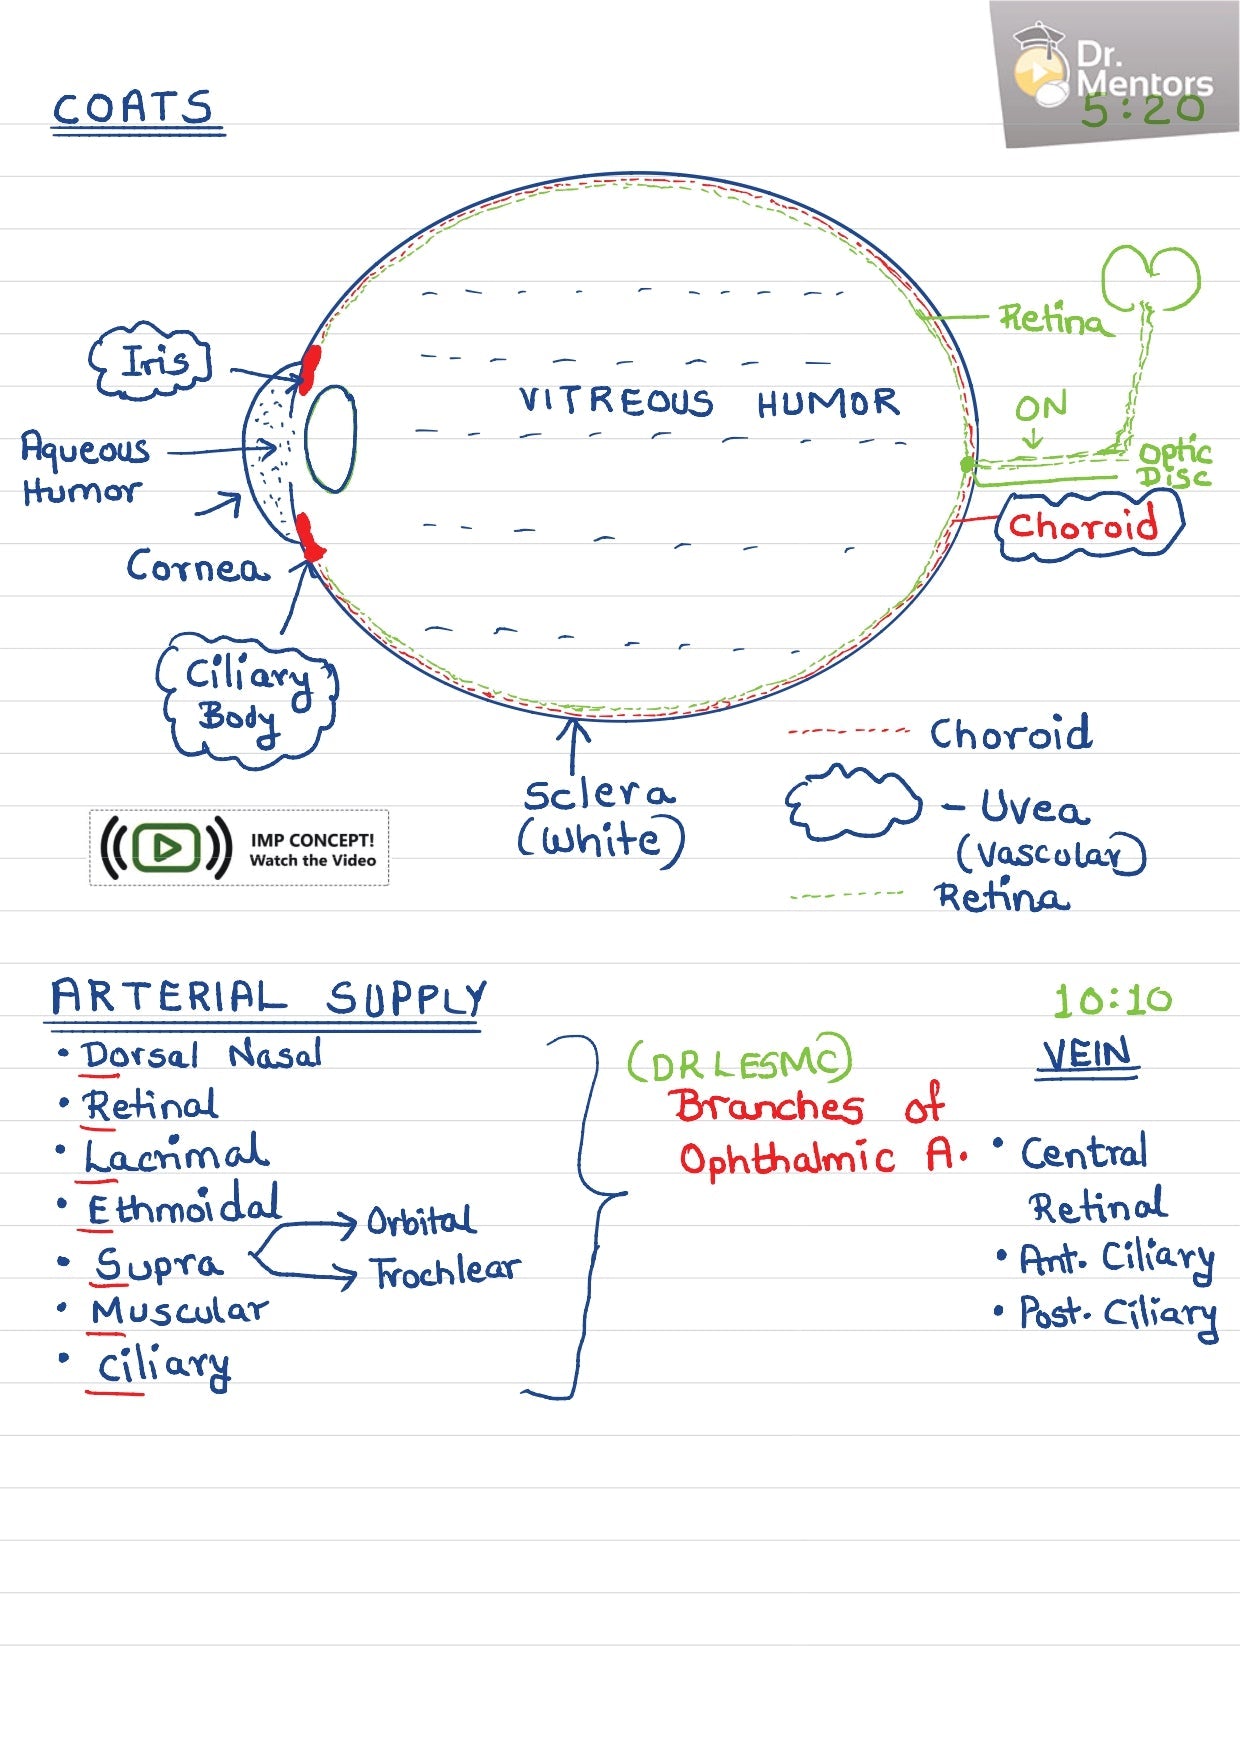 Dr.
Mentors
COATS
5:20
Retina
Iris
VITREOUS HUMOR
ON
Aqueous
Humor
Optic
Disc
Choroid
Cornea
Ciliary
Body
Choroid
Sclera
(White)
Uvea
(Vascular)
Retina
IMP CONCEPT!
Watch the Video
ARTERIAL SUPPLY
10:10
• Dorsal Nasal
• Retinal
• Lacrimal
• Ethmoidal
• Supra
Orbital
Trochlear
• Muscular
• Ciliary
(DRLESMC)
Branches of
Ophthalmic A.
VEIN
• Central
Retinal
• Ant. Ciliary
• Post. Ciliary